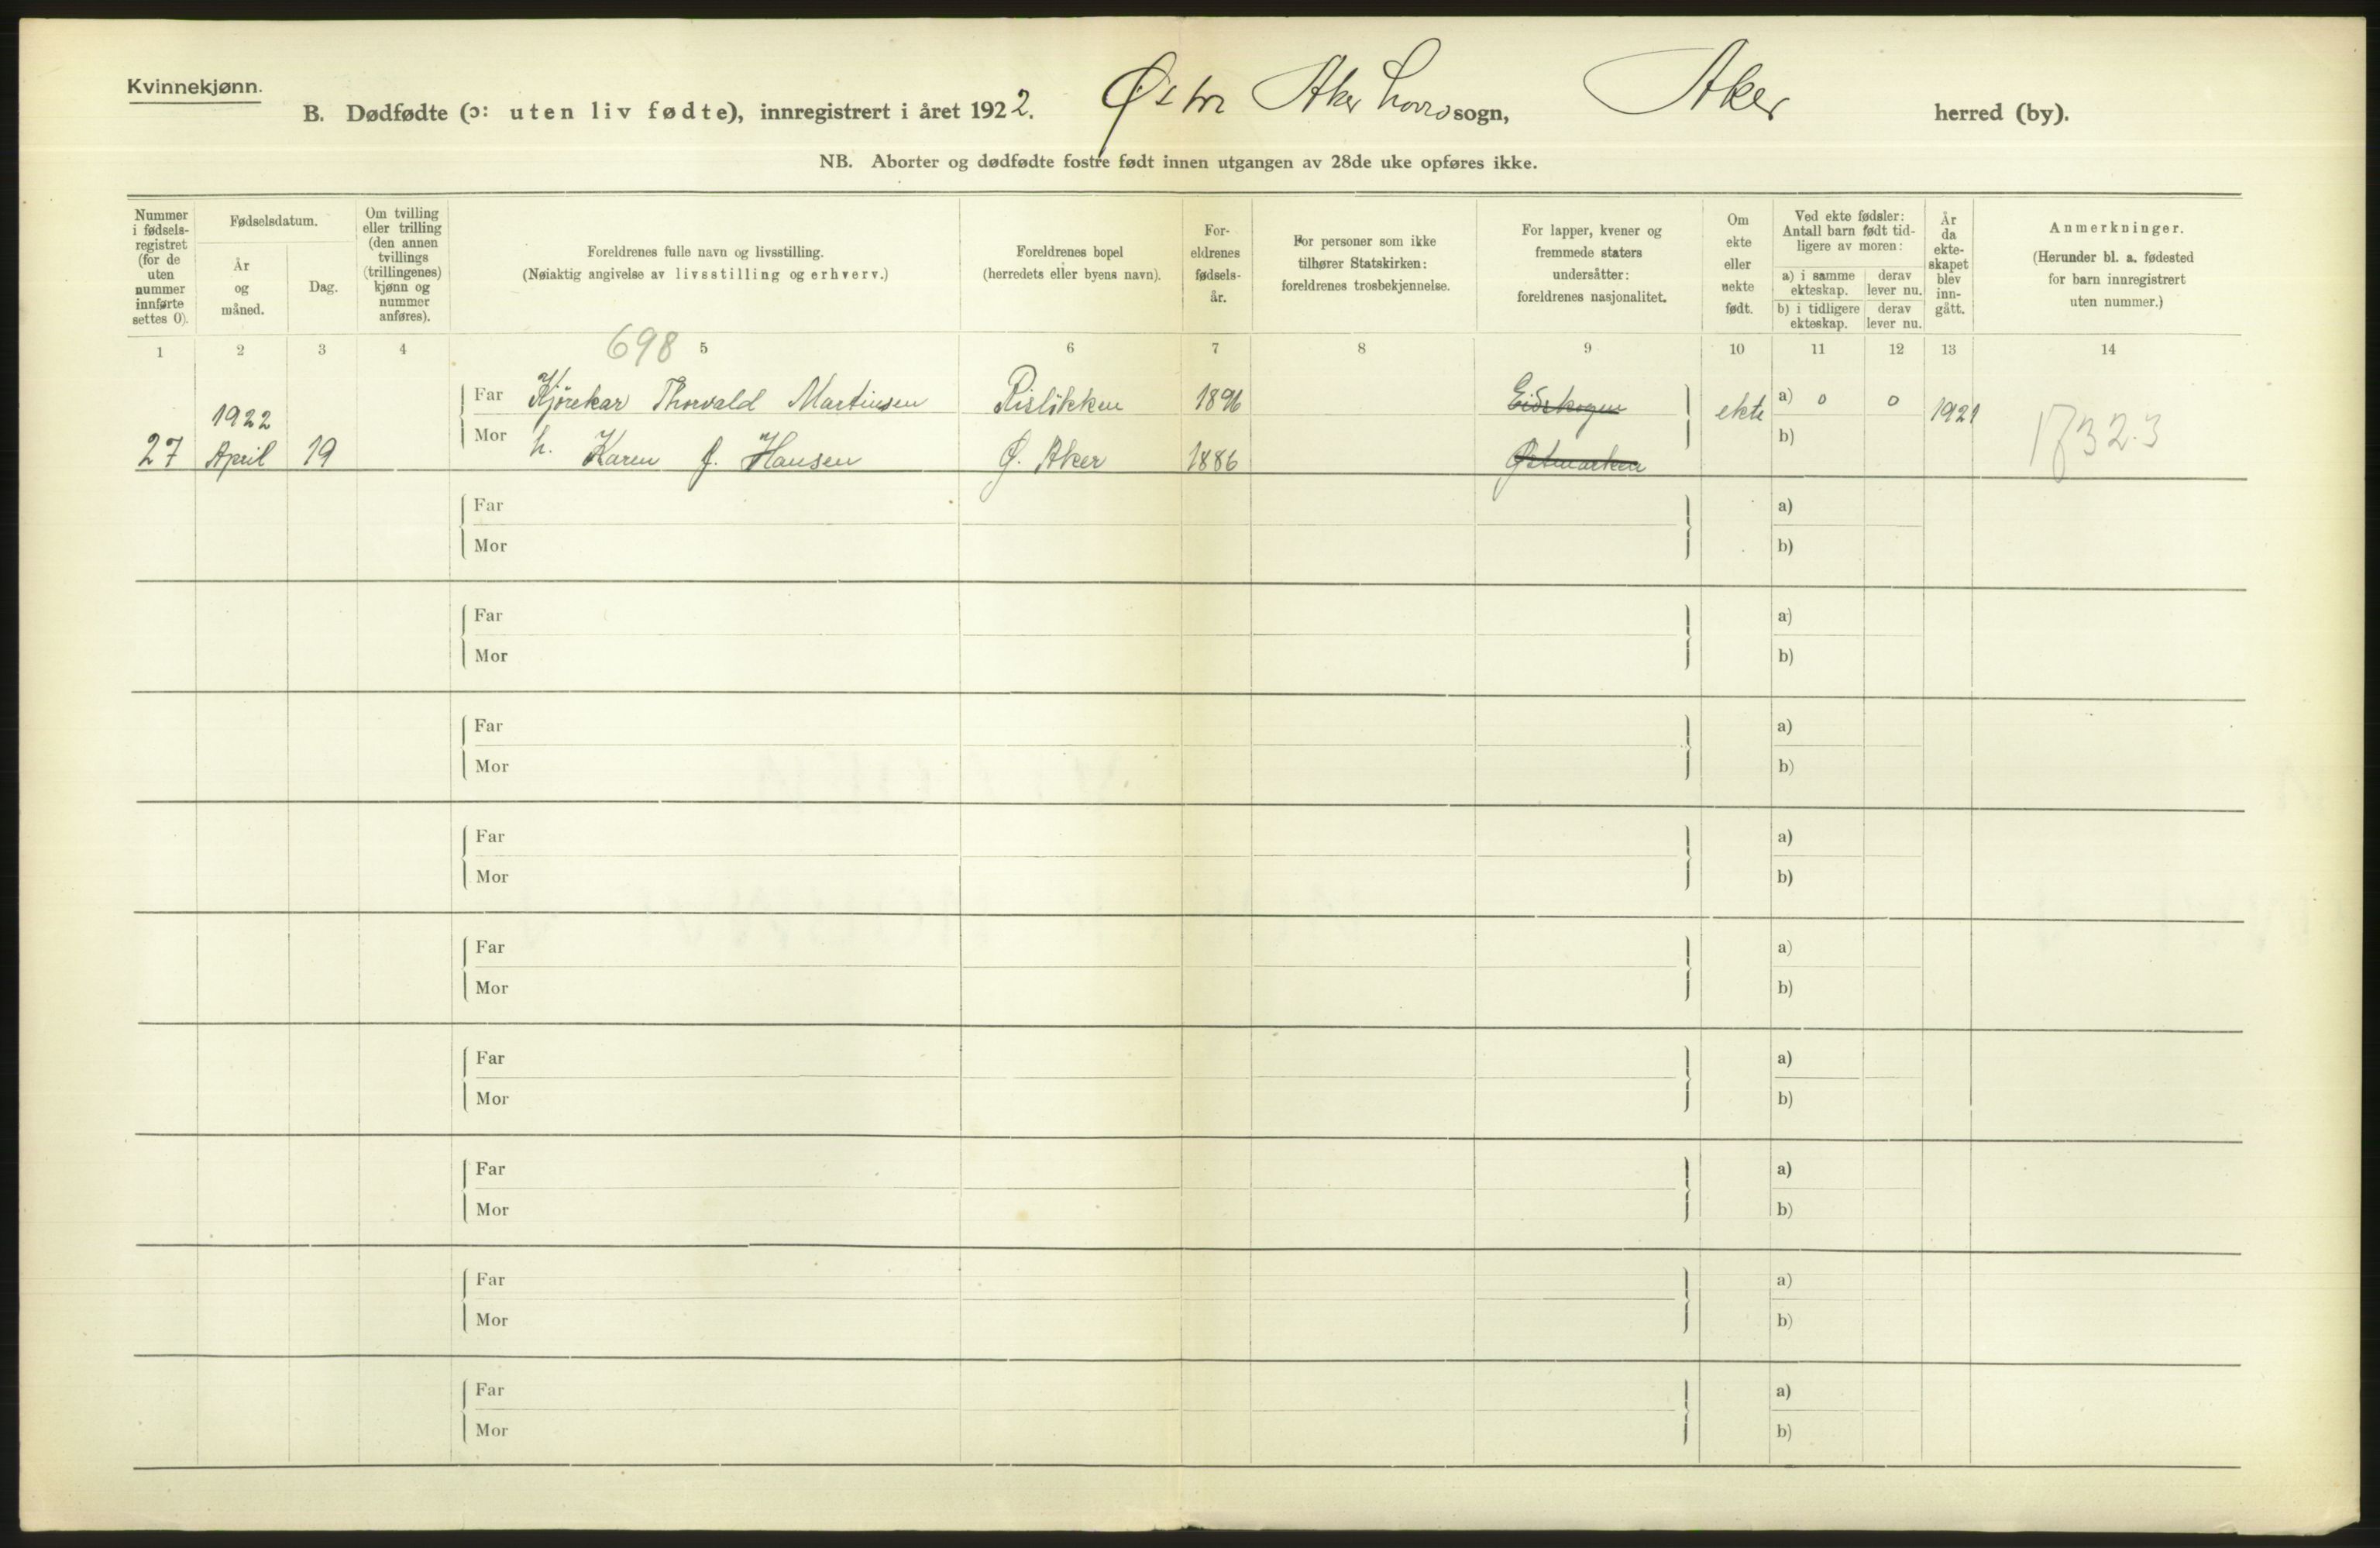 Kvinnekjønn.
B. Dødfødte (ɔ: uten liv fødte), innregistrert i året 1922. Østre Aker hovedsogn, Aker herred (by).
NB. Aborter og dødfødte fostre født innen utgangen av 28de uke opføres ikke.
Nummer i fødsels-registret (for de uten nummer innførte settes 0).
Fødselsdatum.
År og måned.
Dag.
Om tvilling eller trilling (den annen tvillings (trillingenes) kjønn og nummer anføres).
Foreldrenes fulle navn og livsstilling.
(Nøiaktig angivelse av livsstilling og erhverv.)
Foreldrenes bopel
(herredets eller byens navn).
For-eldrenes fødsels-år.
For personer som ikke tilhører Statskirken: foreldrenes trosbekjennelse.
For lapper, kvener og fremmede staters undersåtter: foreldrenes nasjonalitet.
Om ekte eller uekte født.
Ved ekte fødsler: Antall barn født tid-ligere av moren:
a) i samme ekteskap. derav lever nu.
b) i tidligere ekteskap. derav lever nu.
År da ekte-skapet blev inn-gått.
Anmerkninger.
(Herunder bl. a. fødested for barn innregistrert uten nummer.)
1 2 3 4 698 5 6 7 8 9 10 11 12 13 14
Far Kjørekar Thorvald Martinsen Risløkken 1896 Eidskogen ekte a) 0 0 1921
27 1922 April 19 Mor h. Karen J. Hansen Ø. Aker 1886 Østmarken b) 17323
Far a)
Mor b)
Far a)
Mor b)
Far a)
Mor b)
Far a)
Mor b)
Far a)
Mor b)
Far a)
Mor b)
Far a)
Mor b)
Far a)
Mor b)
Far a)
Mor b)